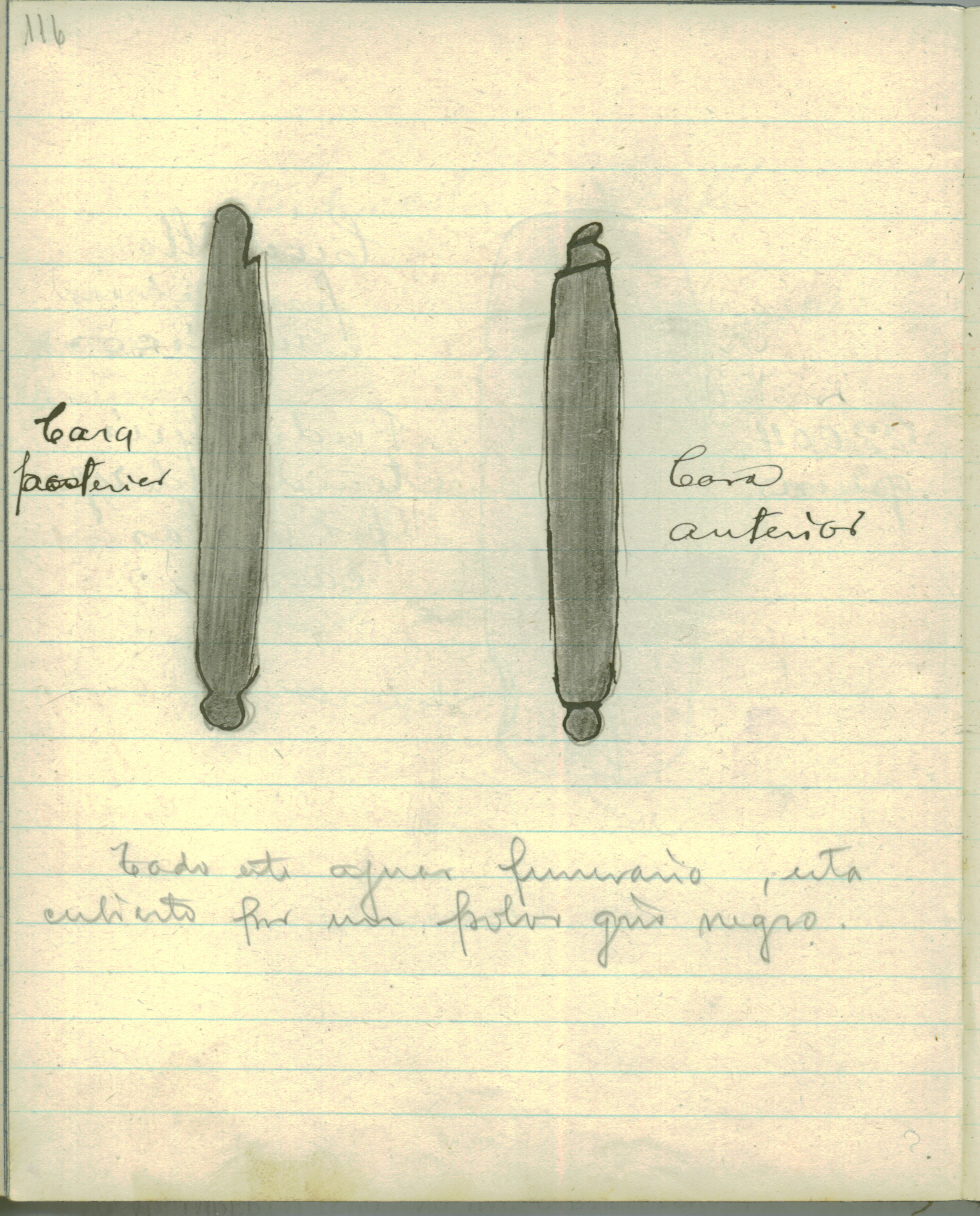 116
Cara
posterior
Cara
anterior
Todo este ajuar funerario, esta
cubierto por un polvo gris negro.